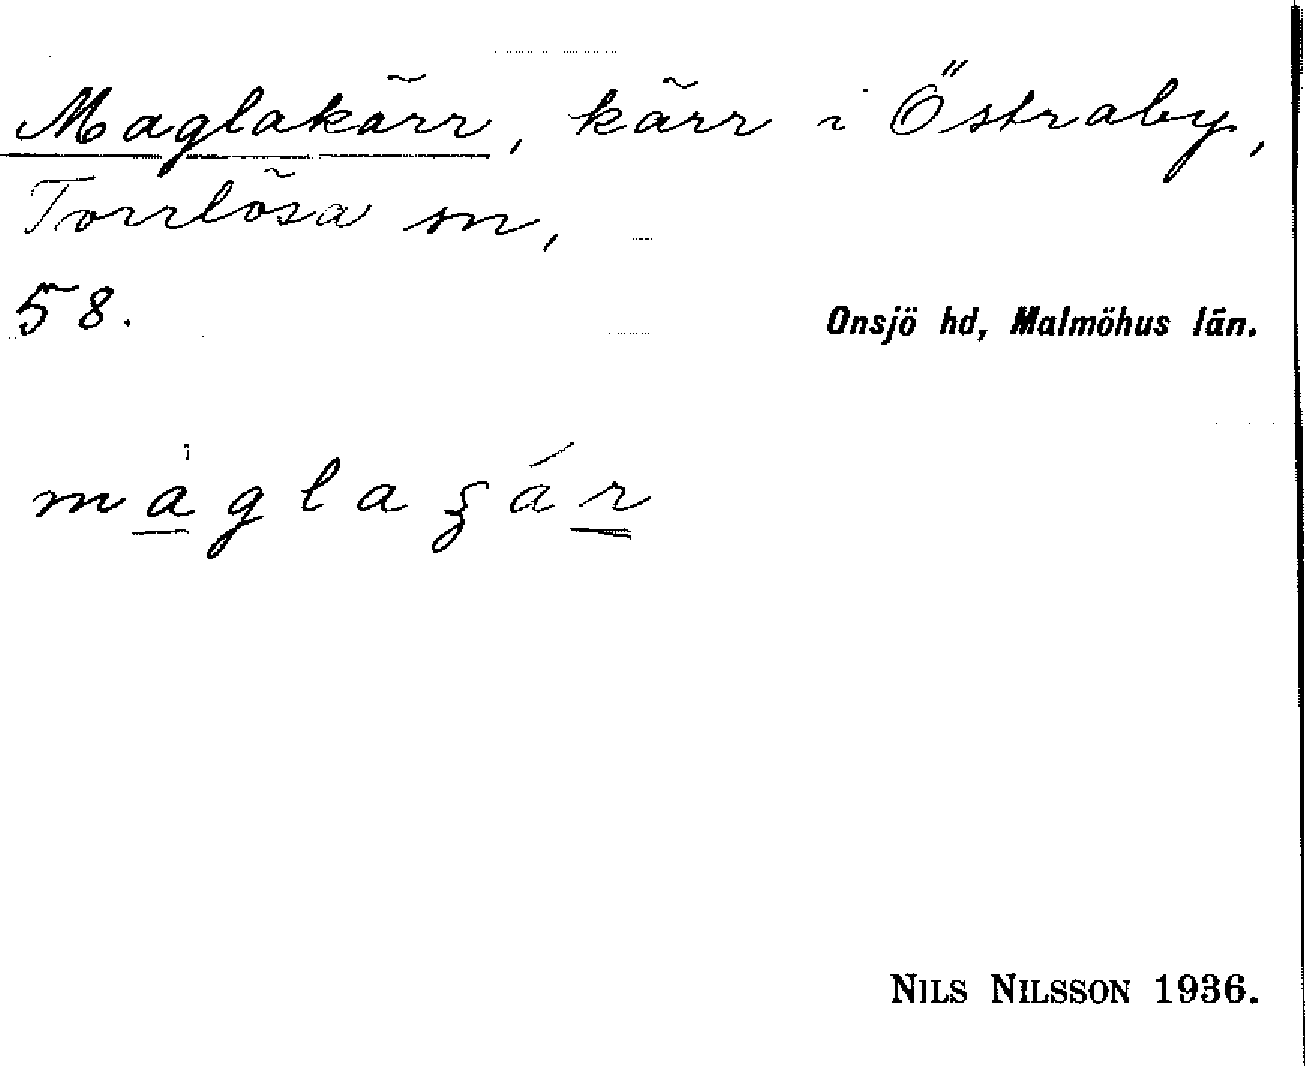 Maglakärr, kärr i Östraby,
Torrlösa sn,
58.
Onsjö hd, Malmöhus län.
màglaʒár
NILS NILSSON 1936.